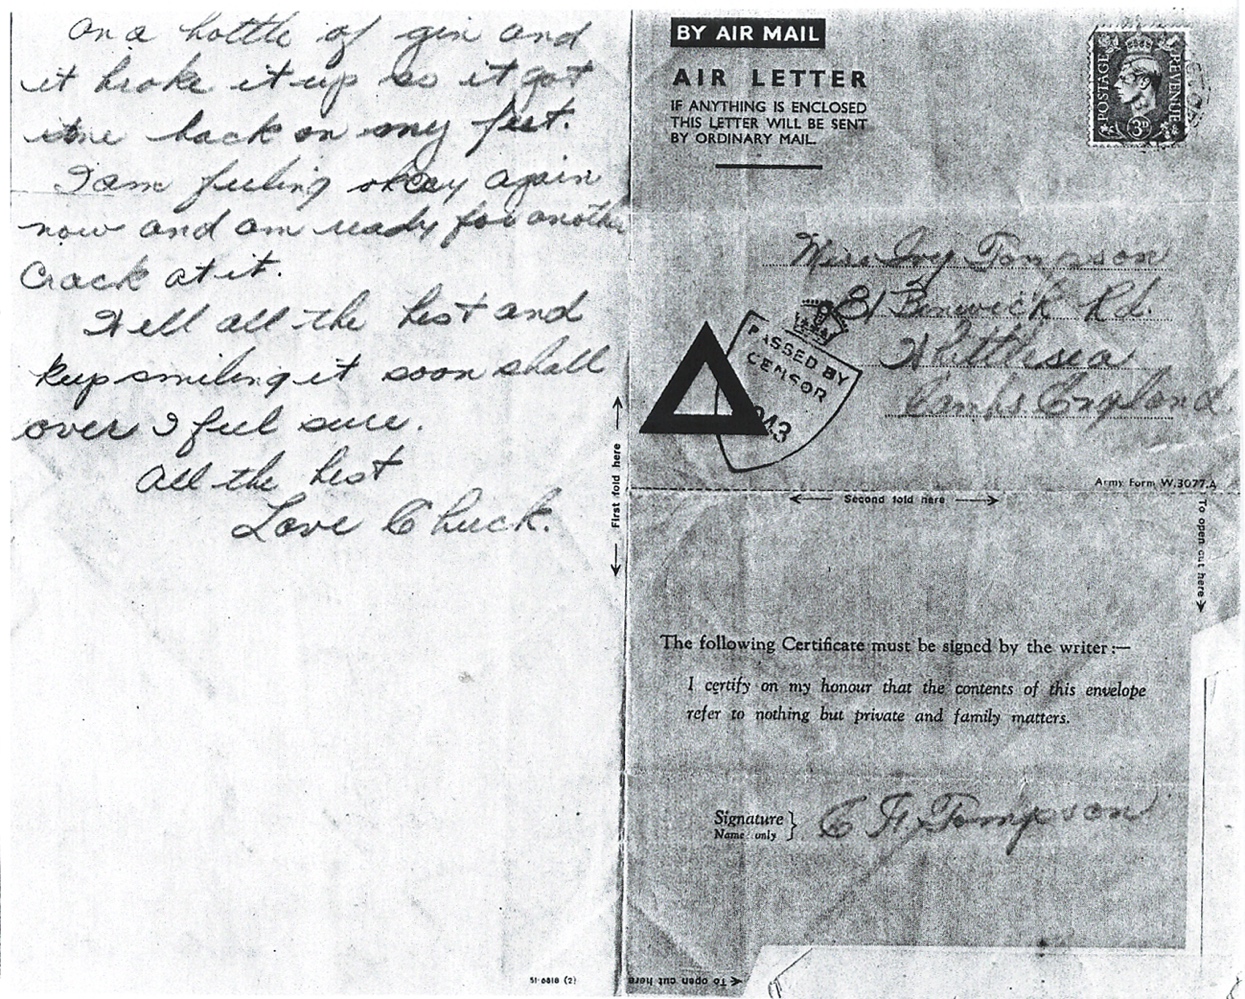 on a bottle of gin and
it broke it up so it got
me back on my feet.
I am feeling okay again
now and am ready for another
Crack at it.
Well all the best and
keep smiling it soon shall
over I feel sure.
All the best
Love Chuck.
51-6818 (2)
First fold here
BY AIR MAIL
AIR LETTER
IF ANYTHING IS ENCLOSED
THIS LETTER WILL BE SENT
BY ORDINARY MAIL.
POSTAGE REVENUE
3D
Miss Ivy Tompson
81 Benwick Rd.
Whittlesea
Cambs England.
PASSED BY
CENSOR
Army Form W.3077.A
Second fold here
To open cut here
The following Certificate must be signed by the writer:—
I certify on my honour that the contents of this envelope
refer to nothing but private and family matters.
Signature
Name only
C F Tompson
To open cut here